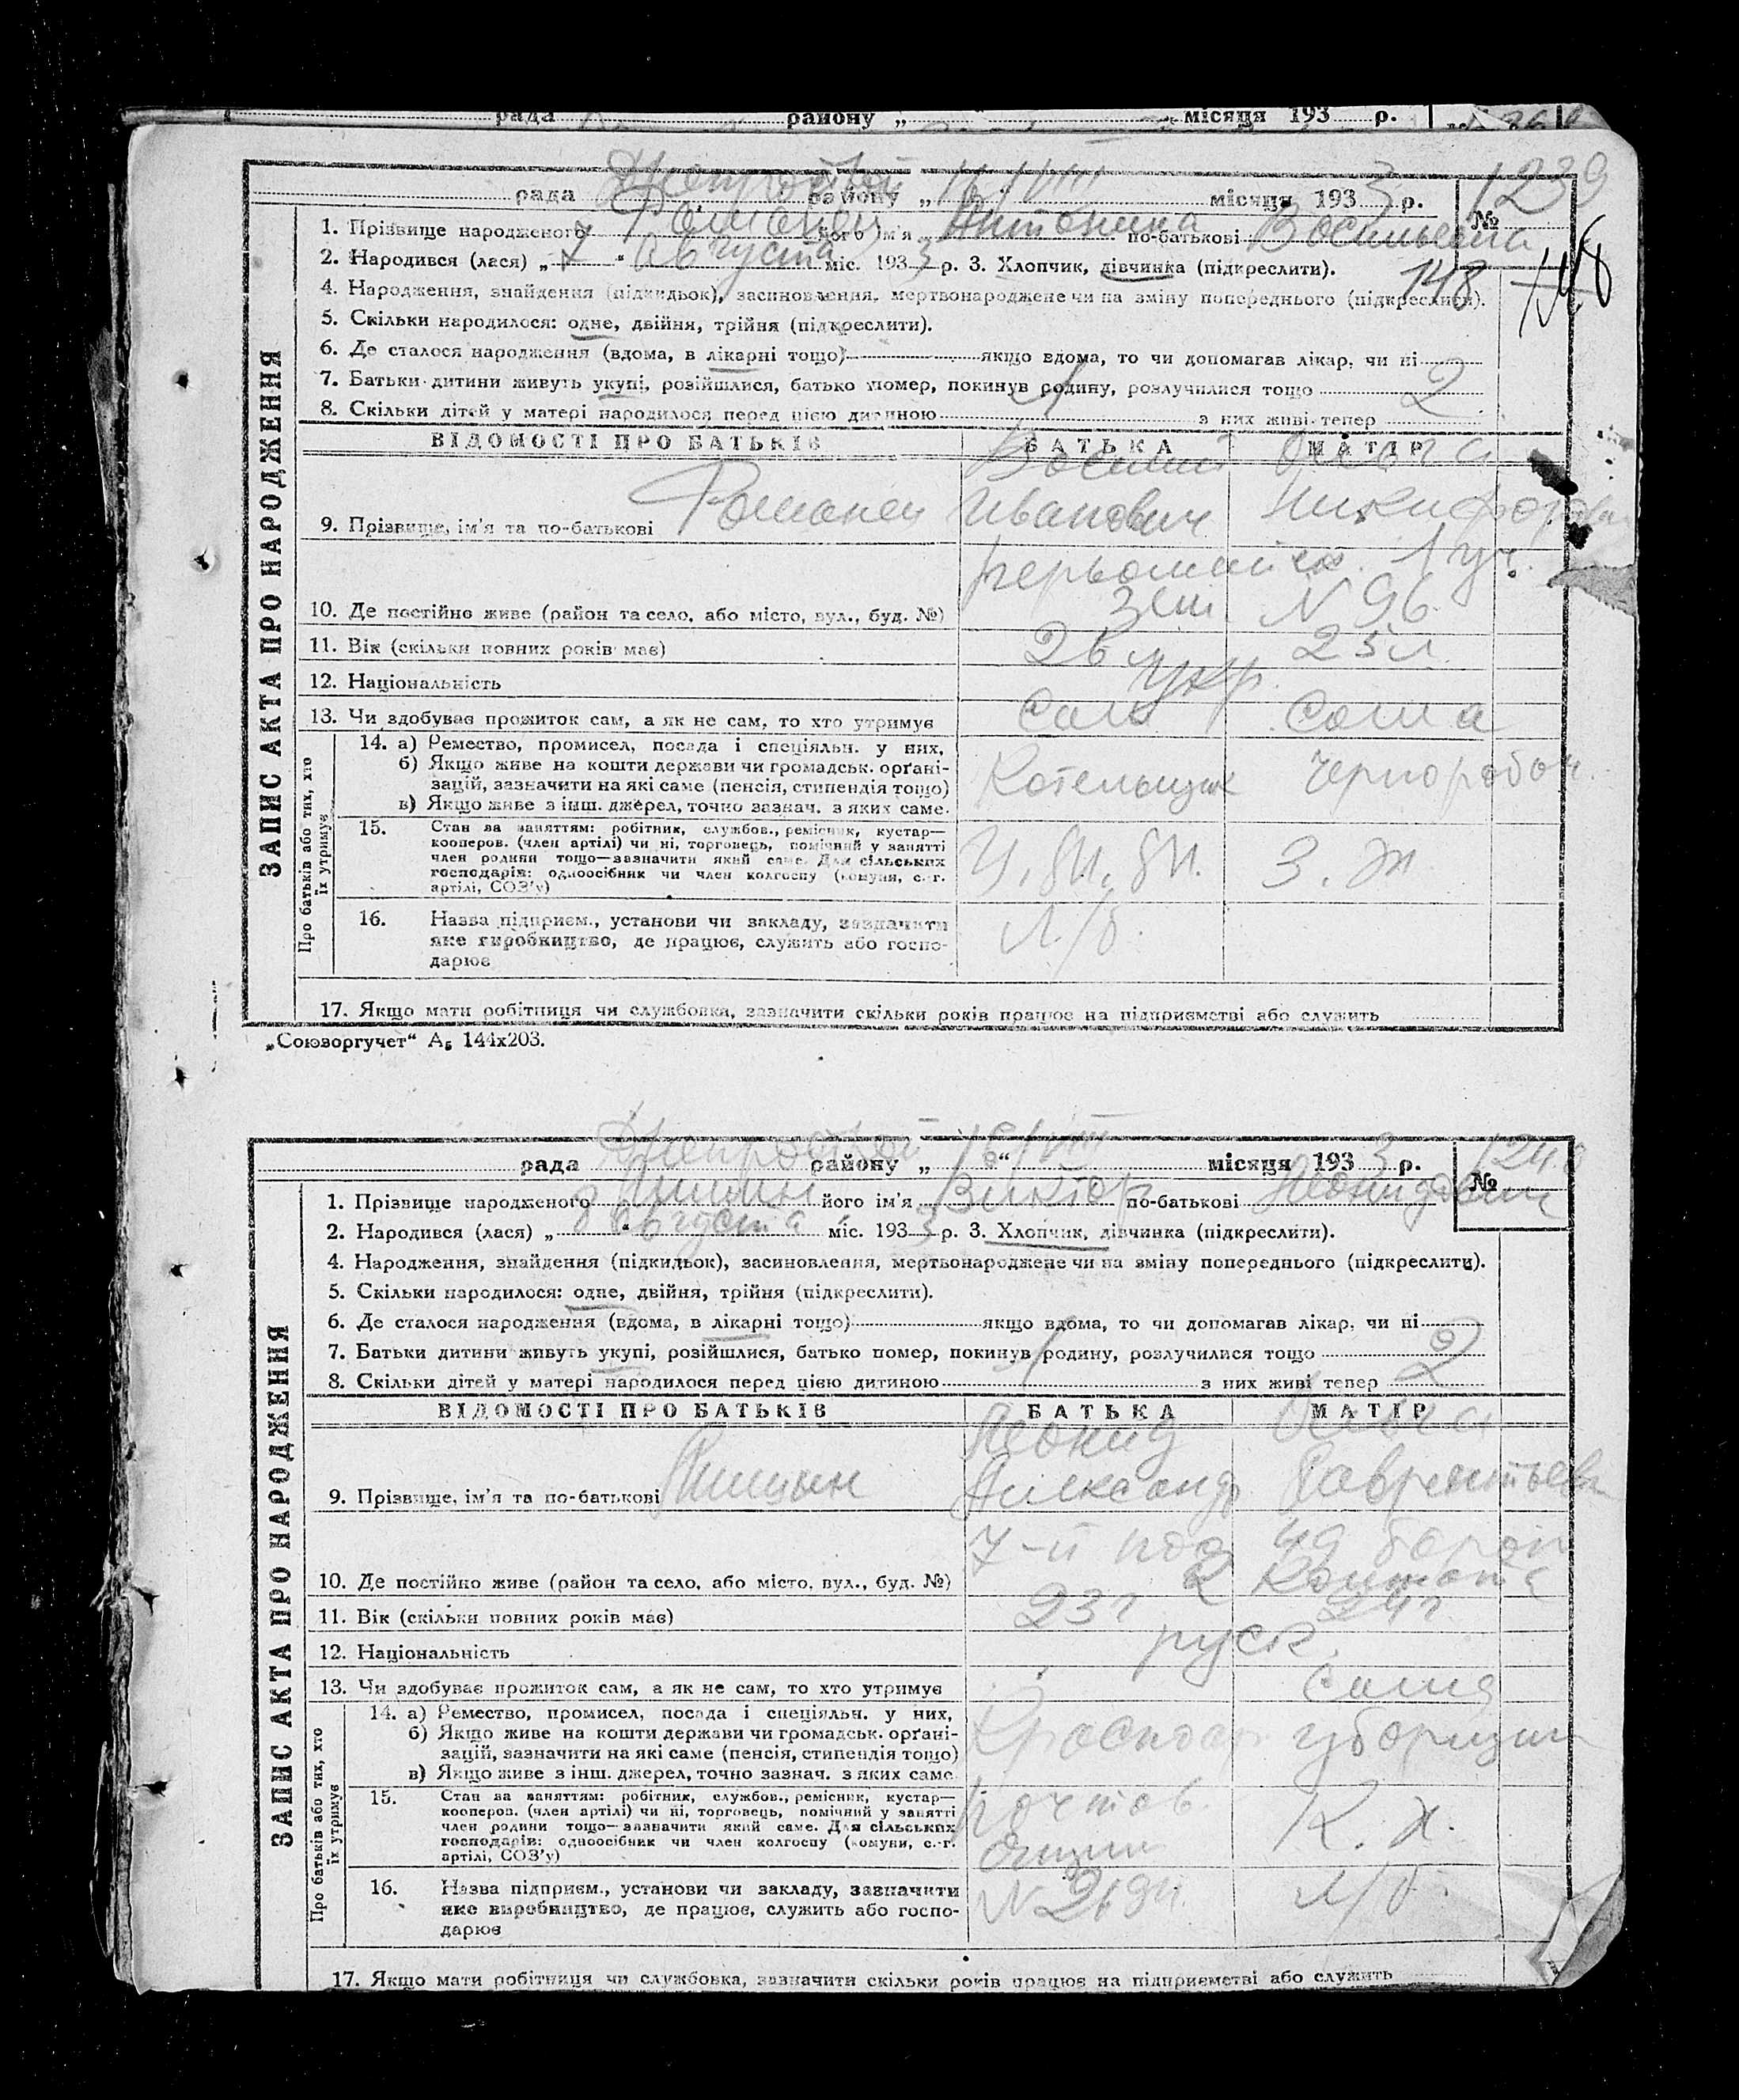 рада району „ “ місяця 193 р.
рада Днепрострой району „ 16/VIII місяця 1933 р. № 1239
1. Прізвище народженого Романец його ім'я Антонина по-батькові Васильевна
2. Народився (лася) „ 7 “ Августа міс. 1933 р. 3. Хлопчик, дівчинка (підкреслити).
148
4. Народження, знайдення (підкидьок), засиновлення, мертвонароджене чи на зміну попереднього (підкреслити).
5. Скільки народилося: одне, двійня, трійня (підкреслити).
6. Де сталося народження (вдома, в лікарні тощо) якщо вдома, то чи допомагав лікар, чи ні
7. Батьки дитини живуть укупі, розійшлися, батько помер, покинув родину, розлучилися тощо
8. Скільки дітей у матері народилося перед цією дитиною 1 з них живі тепер 2
ЗАПИС АКТА ПРО НАРОДЖЕННЯ
ВІДОМОСТІ ПРО БАТЬКІВ БАТЬКА МАТІР
Василий Ольга
9. Прізвище, ім'я та по-батькові Романец Иванович Никифоровна
10. Де постійно живе (район та село, або місто, вул., буд. №) N 96
11. Вік (скільки повних років має) 26 25 л
12. Національність укр.
13. Чи здобуває прожиток сам, а як не сам, то хто утримує Сам Сама
Про батьків або тих, хто їх утримує
14. а) Ремество, промисел, посада і спеціяльн. у них,
б) Якщо живе на кошти держави чи громадськ. орґані-
зацій, зазначити на які саме (пенсія, стипендія тощо) Котельщик Чернорабоч.
в) Якщо живе з інш. джерел, точно зазнач. з яких саме.
15. Стан за заняттям: робітник, службов., ремісник, кустар—
кооперов. (член артілі) чи ні, торговець, помічний у занятті
член родини тощо—зазначити який саме. Для сільських
господарів: одноосібник чи член колгоспу (комуни, с.-г.
артілі, СОЗ'у)
16. Назва підприєм., установи чи закладу, зазначити Л/б.
яке виробництво, де працює, служить або госпо-
дарює
17. Якщо мати робітниця чи службовка, зазначити скільки років працює на підприємстві або служить
„Союзоргучет“ А₅ 144х203.
рада Днепрострой району „ 16/VIII “ місяця 1933 р. № 1240
1. Прізвище народженого його ім'я Виктор по-батькові Леонидович
2. Народився (лася) „ 8 “ Августа міс. 1933 р. 3. Хлопчик, дівчинка (підкреслити).
4. Народження, знайдення (підкидьок), засиновлення, мертвонароджене чи на зміну попереднього (підкреслити).
5. Скільки народилося: одне, двійня, трійня (підкреслити).
6. Де сталося народження (вдома, в лікарні тощо) якщо вдома, то чи допомагав лікар, чи ні
7. Батьки дитини живуть укупі, розійшлися, батько помер, покинув родину, розлучилися тощо
8. Скільки дітей у матері народилося перед цією дитиною 1 з них живі тепер 2
ЗАПИС АКТА ПРО НАРОДЖЕННЯ
ВІДОМОСТІ ПРО БАТЬКІВ БАТЬКА МАТІР
Леонид Ольга
9. Прізвище, ім'я та по-батькові Александр Лаврентьевн
10. Де постійно живе (район та село, або місто, вул., буд. №) 2 Комната
11. Вік (скільки повних років має) 23 г 24 г
12. Національність руск.
13. Чи здобуває прожиток сам, а як не сам, то хто утримує Сама
Про батьків або тих, хто їх утримує
14. а) Ремество, промисел, посада і спеціяльн. у них,
б) Якщо живе на кошти держави чи громадськ. орґані-
зацій, зазначити на які саме (пенсія, стипендія тощо) уборщиц
в) Якщо живе з інш. джерел, точно зазнач. з яких саме.
15. Стан за заняттям: робітник, службов., ремісник, кустар— почтов.
кооперов. (член артілі) чи ні, торговець, помічний у занятті К. Х.
член родини тощо—зазначити який саме. Для сільських
господарів: одноосібник чи член колгоспу (комуни, с.-г. ящик
артілі, СОЗ'у)
16. Назва підприєм., установи чи закладу, зазначити Л/б.
яке виробництво, де працює, служить або госпо-
дарює
17. Якщо мати робітниця чи службовка, зазначити скільки років працює на підприємстві або служить